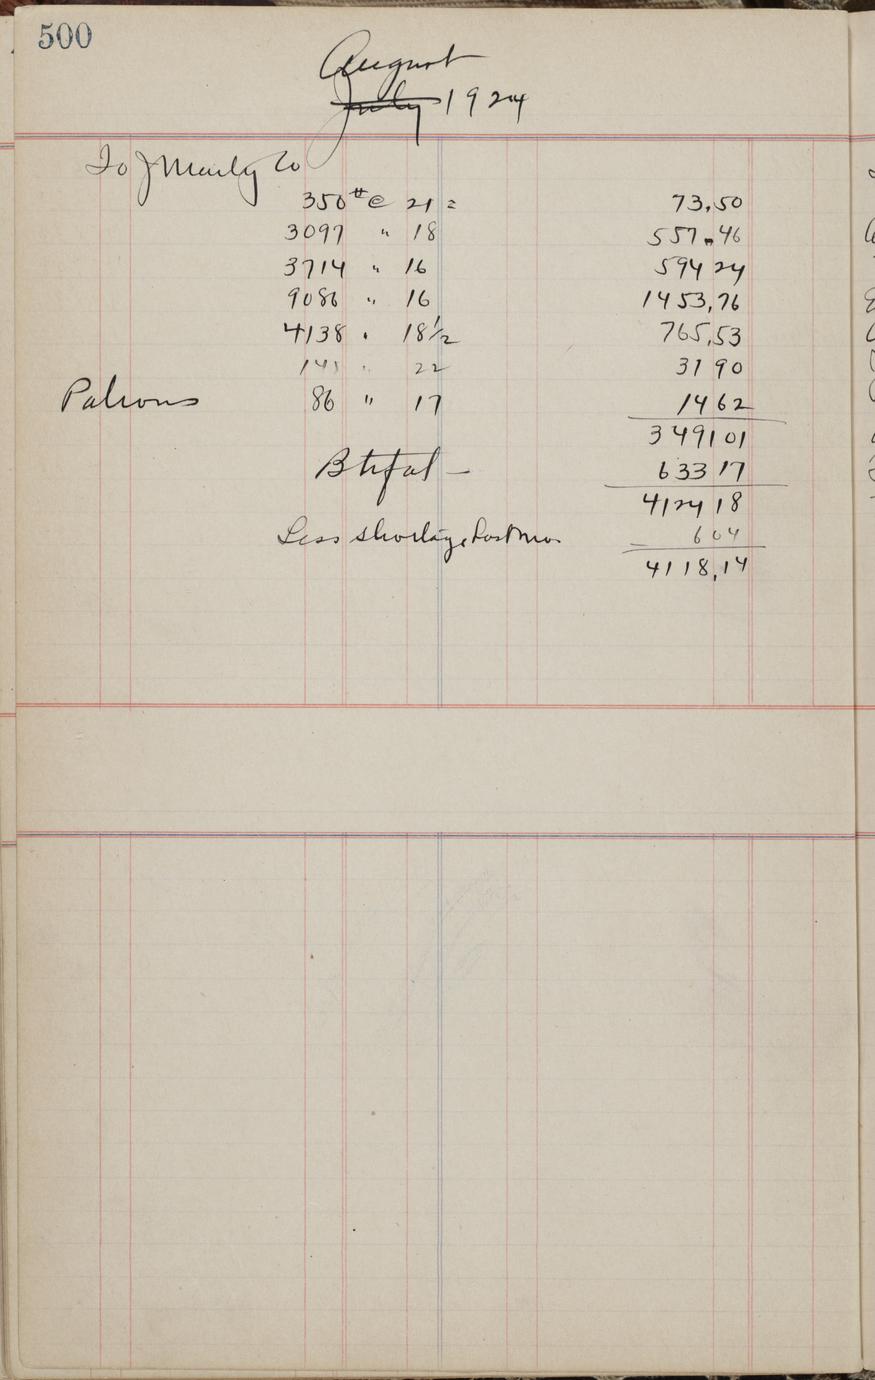 500
August
July 1924
To J Manly Co
350 # @ 21 = 73.50
3097 " 18 557.46
3714 " 16 594 24
9086 " 16 1453,76
4138 " 18 1/2 765,53
145 " 22 31 90
Patrons 86 " 17 14 62
3491 01
Btrfat — 633 17
4124 18
Less shortage Past Mo. — 6 04
4118,14